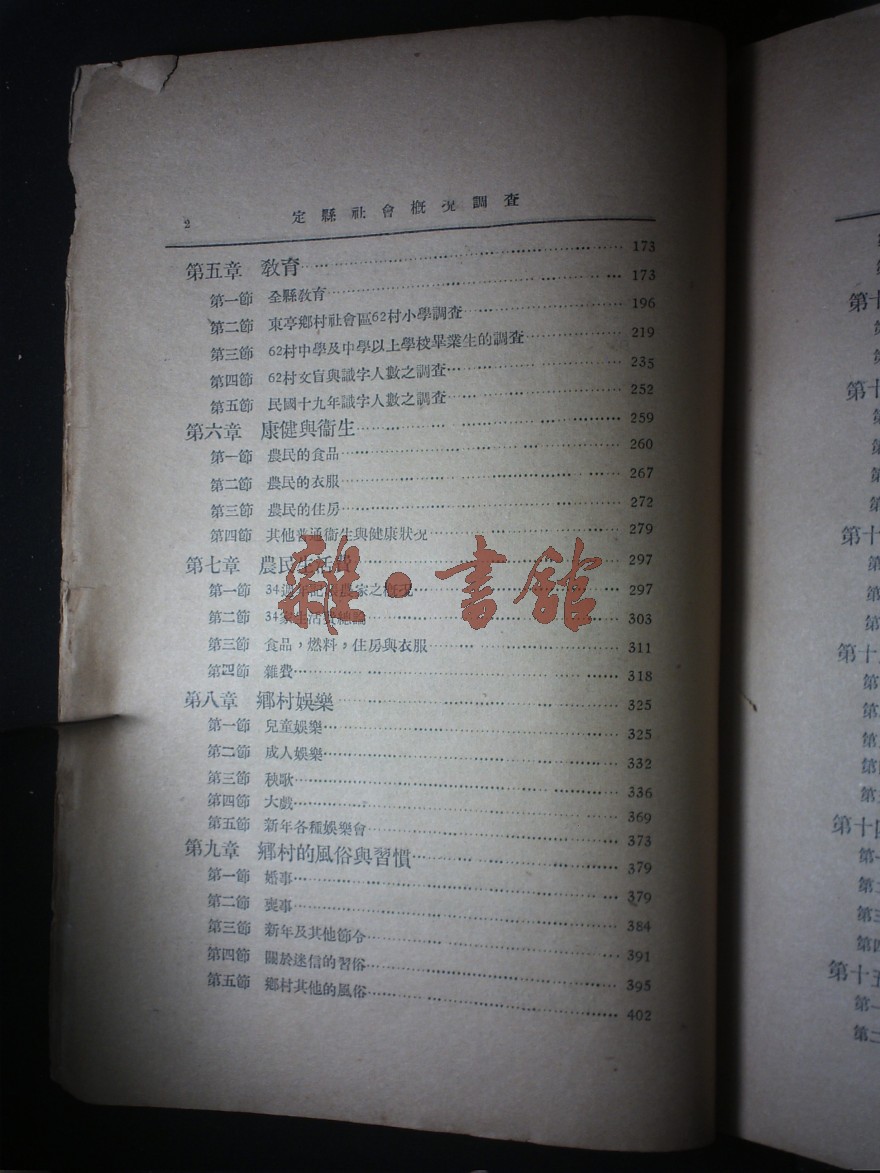 2 定縣社會概況調查
第五章 教育 173
第一節 全縣教育 173
第二節 東亭鄉村社會區62村小學調查 196
第三節 62村中學及中學以上學校畢業生的調查 219
第四節 62村文盲與識字人數之調查 235
第五節 民國十九年識字人數之調查 252
第六章 康健與衞生 259
第一節 農民的食品 260
第二節 農民的衣服 267
第三節 農民的住房 272
第四節 其他普通衞生與健康狀況 279
第七章 農民生活費 297
第一節 34週年記賬農家之概況 297
第二節 34家生活費總論 303
第三節 食品，燃料，住房與衣服 311
第四節 雜費 318
第八章 鄉村娛樂 325
第一節 兒童娛樂 325
第二節 成人娛樂 332
第三節 秧歌 336
第四節 大戲 369
第五節 新年各種娛樂會 373
第九章 鄉村的風俗與習慣 379
第一節 婚事 379
第二節 喪事 384
第三節 新年及其他節令 391
第四節 關於迷信的習俗 395
第五節 鄉村其他的風俗 402
雜·書館